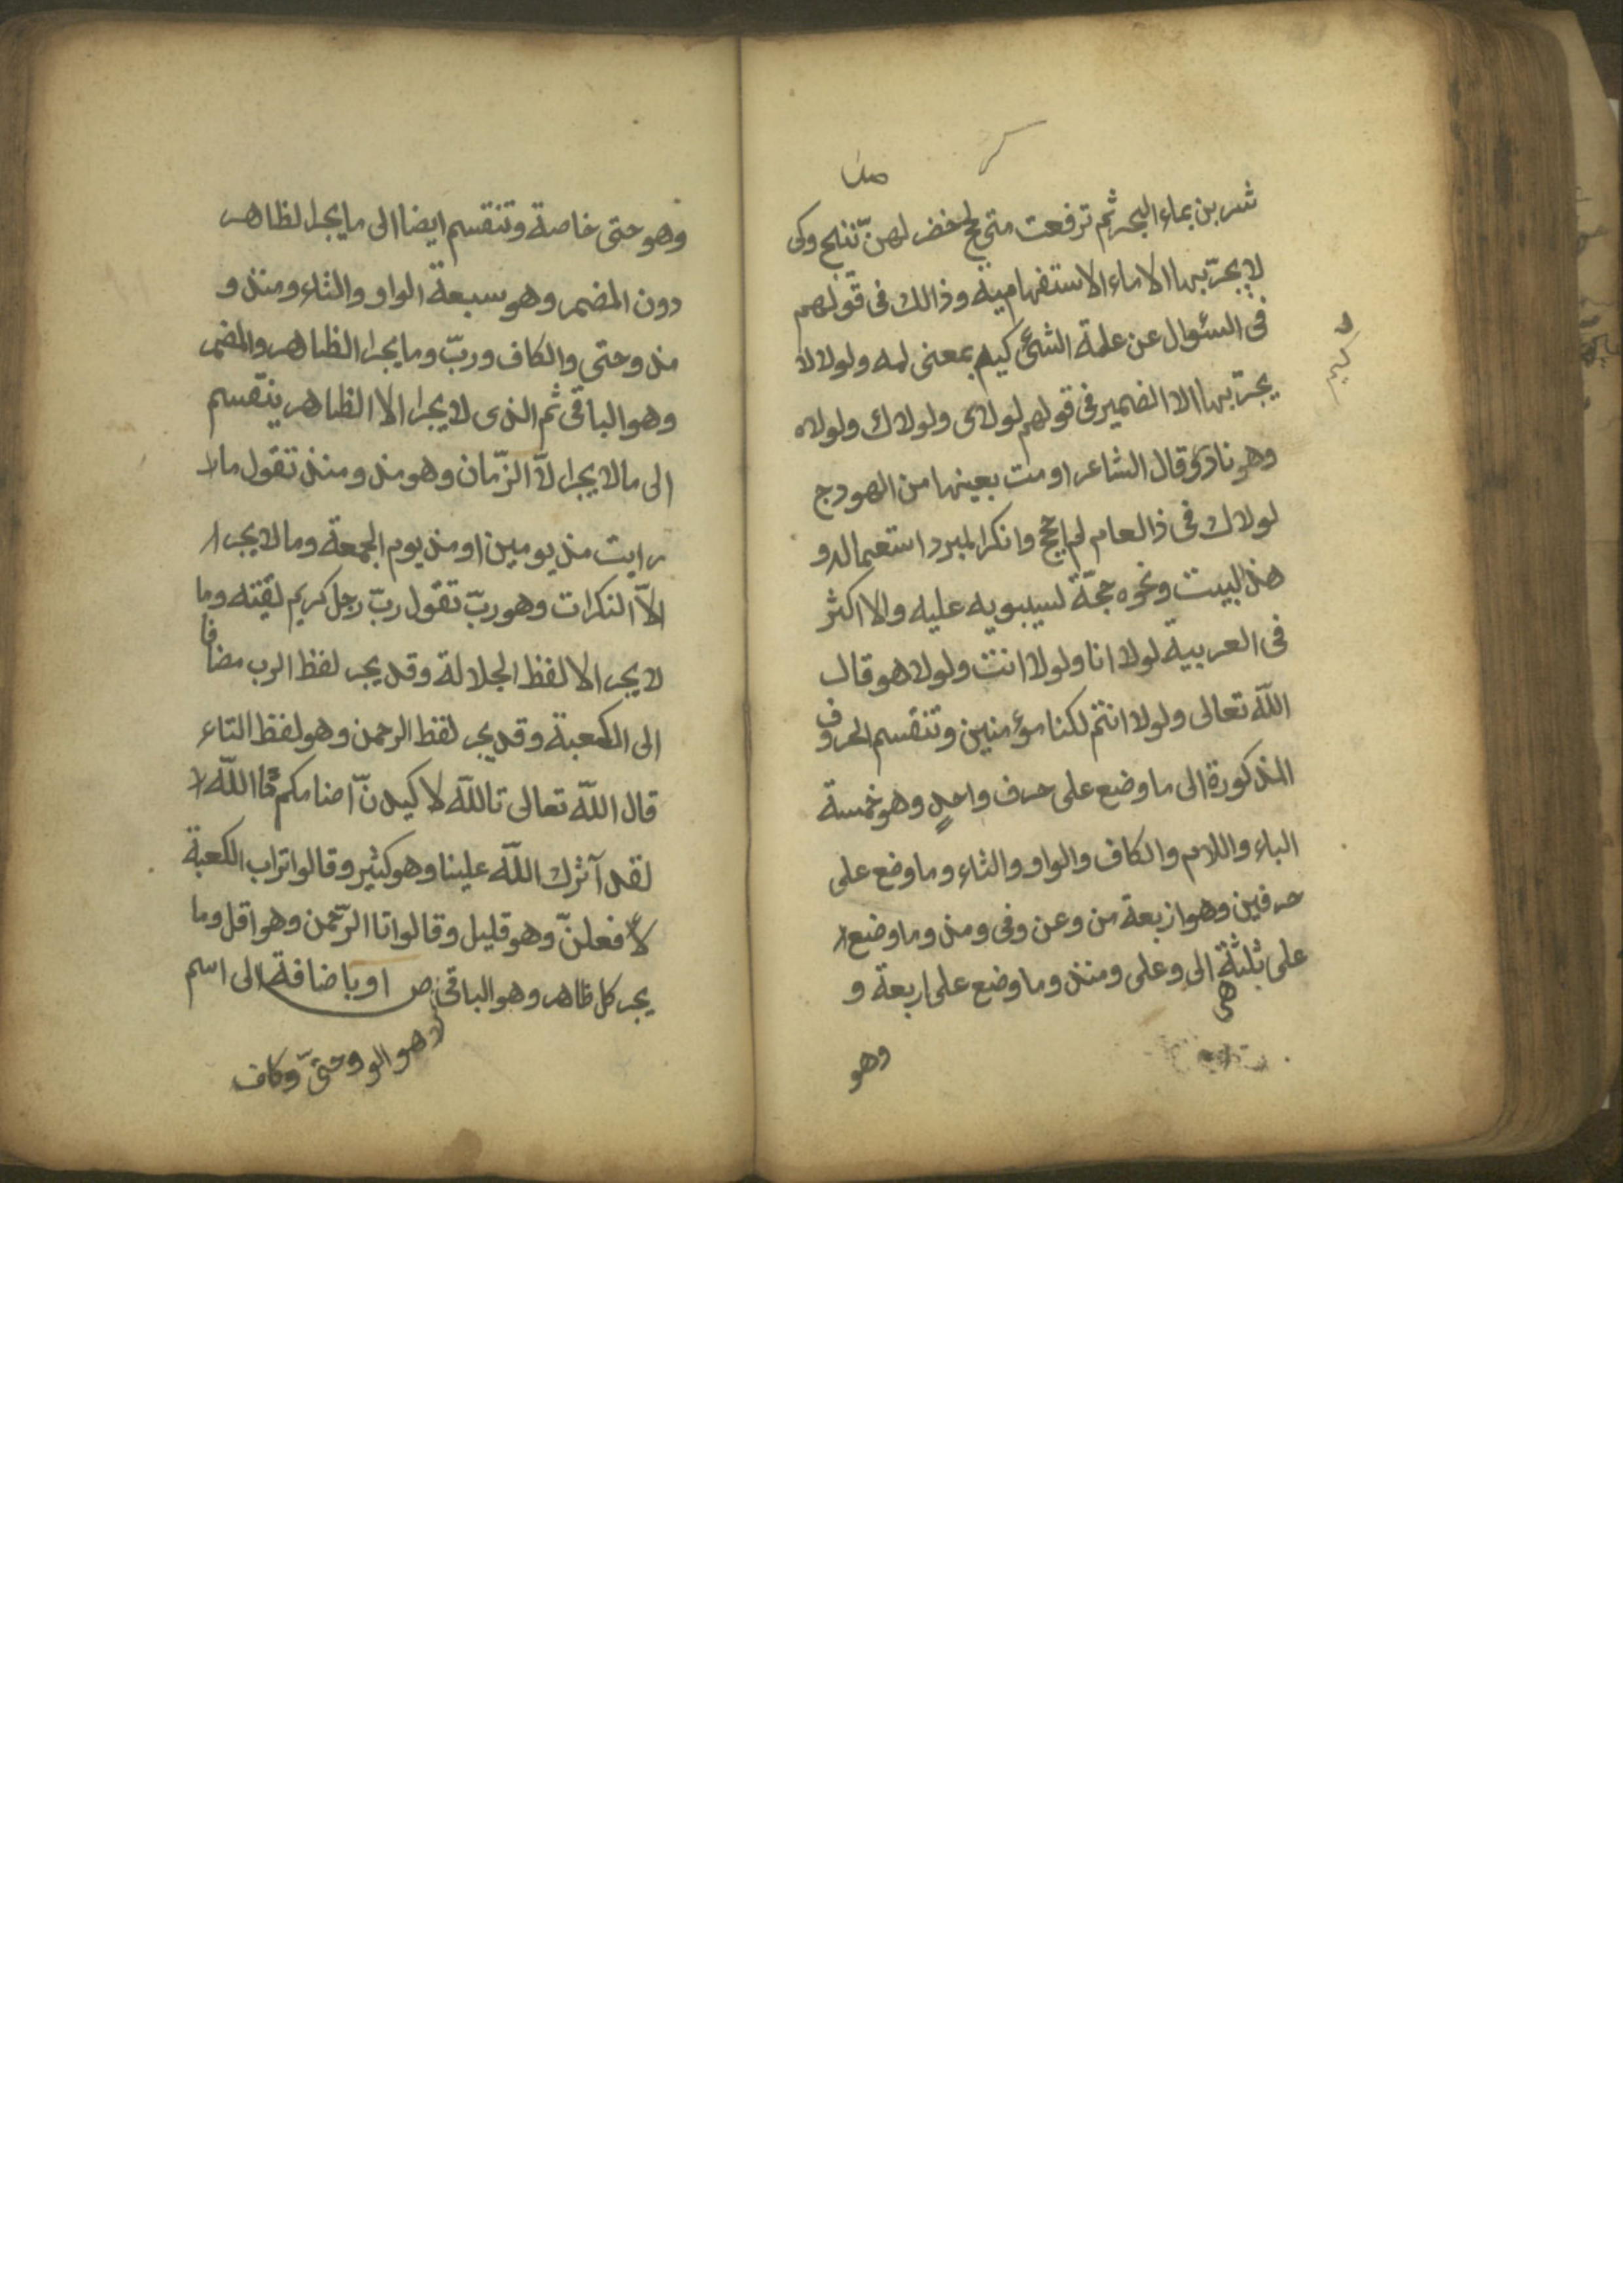 شربن بماء البحر ثم ترفعت متى لجج خضر لهنّ نئيج وكى
لا يجرّ بها الا ماء الاستفهامية وذالك فى قولهم
فى السئوال عن علة الشئ كيم بمعنى لمه ولولا لا
يجرّ بها الا الضمير فى قولهم لولاى ولولاك ولولاه
وهو نادر قال الشاعر اومت بعينها من الهودج
لولاك فى ذا العام لم احجج وانكر المبرد استعماله و
هذ البيت ونحوه حجّة لسيبويه عليه والا اكثر
فى العربية لولا انا ولولا انت ولولا هو قال
اللّه تعالى ولولا انتم لكنا مؤمنين وتنقسم الحروف
المذكورة الى ما وضع على حرف واحدٍ وهو خمسة
الباء واللام والكاف والواو والتاء وما وضع على
حرفين وهو اربعة من وعن وفى ومذ وما وضع
على ثلثة هى الى وعلى ومنذ وما وضع على اربعة و
وهو
وهو حتى خاصة وتنقسم ايضا الى ما يجر الظاهر
دون المضمر وهو سبعة الواو والتاء ومنذ و
مذ وحتى والكاف وربّ وما يجر الظاهر والمضمر
وهو الباقى ثم الذى لا يجر الا الظاهر ينقسم
الى ما لا يجر الّا الزّمان وهو مذ ومنذ تقول ما
رايت مذ يومين او مذ يوم الجمعة وما لا يجر
الاّ النكرات وهو ربّ تقول ربّ رجل كريم لقيته وما
لا يجر الا لفظ الجلالة وقد يجر لفظ الرب مضافا
الى الكعبة وقد يجر لفظ الرحمن وهو لفظ التاء
قال اللّه تعالى تاللّه لاكيدنّ اصنامكم تا اللّه
لقد آثرك اللّه علينا وهو كثير وقالوا تراب الكعبة
لافعلنّ وهو قليل وقالوا تا الرّحمن وهو اقل وما
يجر كل ظاهر وهو الباقى ص او باضافة الى اسم
لا هو الو وحتىّ وكاف